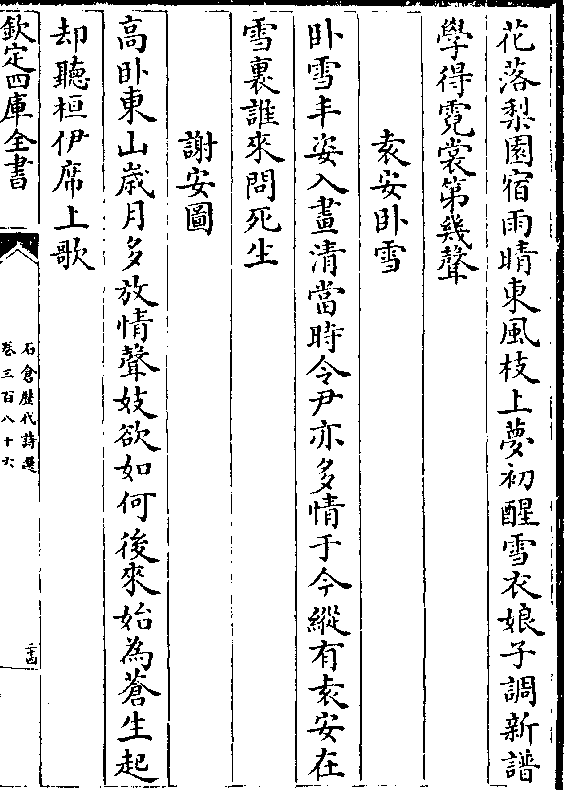 花落梨園宿雨晴東風枝上夢初醒雪衣娘子調新譜
學得霓裳第幾聲
袁安卧雪
卧雪丰姿入畫清當時令尹亦多情于今縱有袁安在
雪裏誰來問死生
謝安圖
高卧東山嵗月多放情聲妓欲如何後來始為蒼生起
却聽桓伊席上歌
欽定四庫全書
石倉歴代詩選
卷三百八十六
二十四